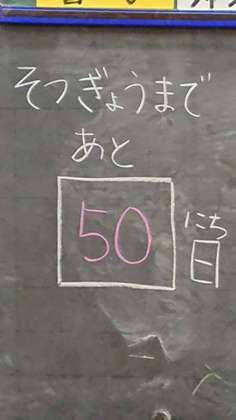 そつぎょうまで
あと
50
にち
日